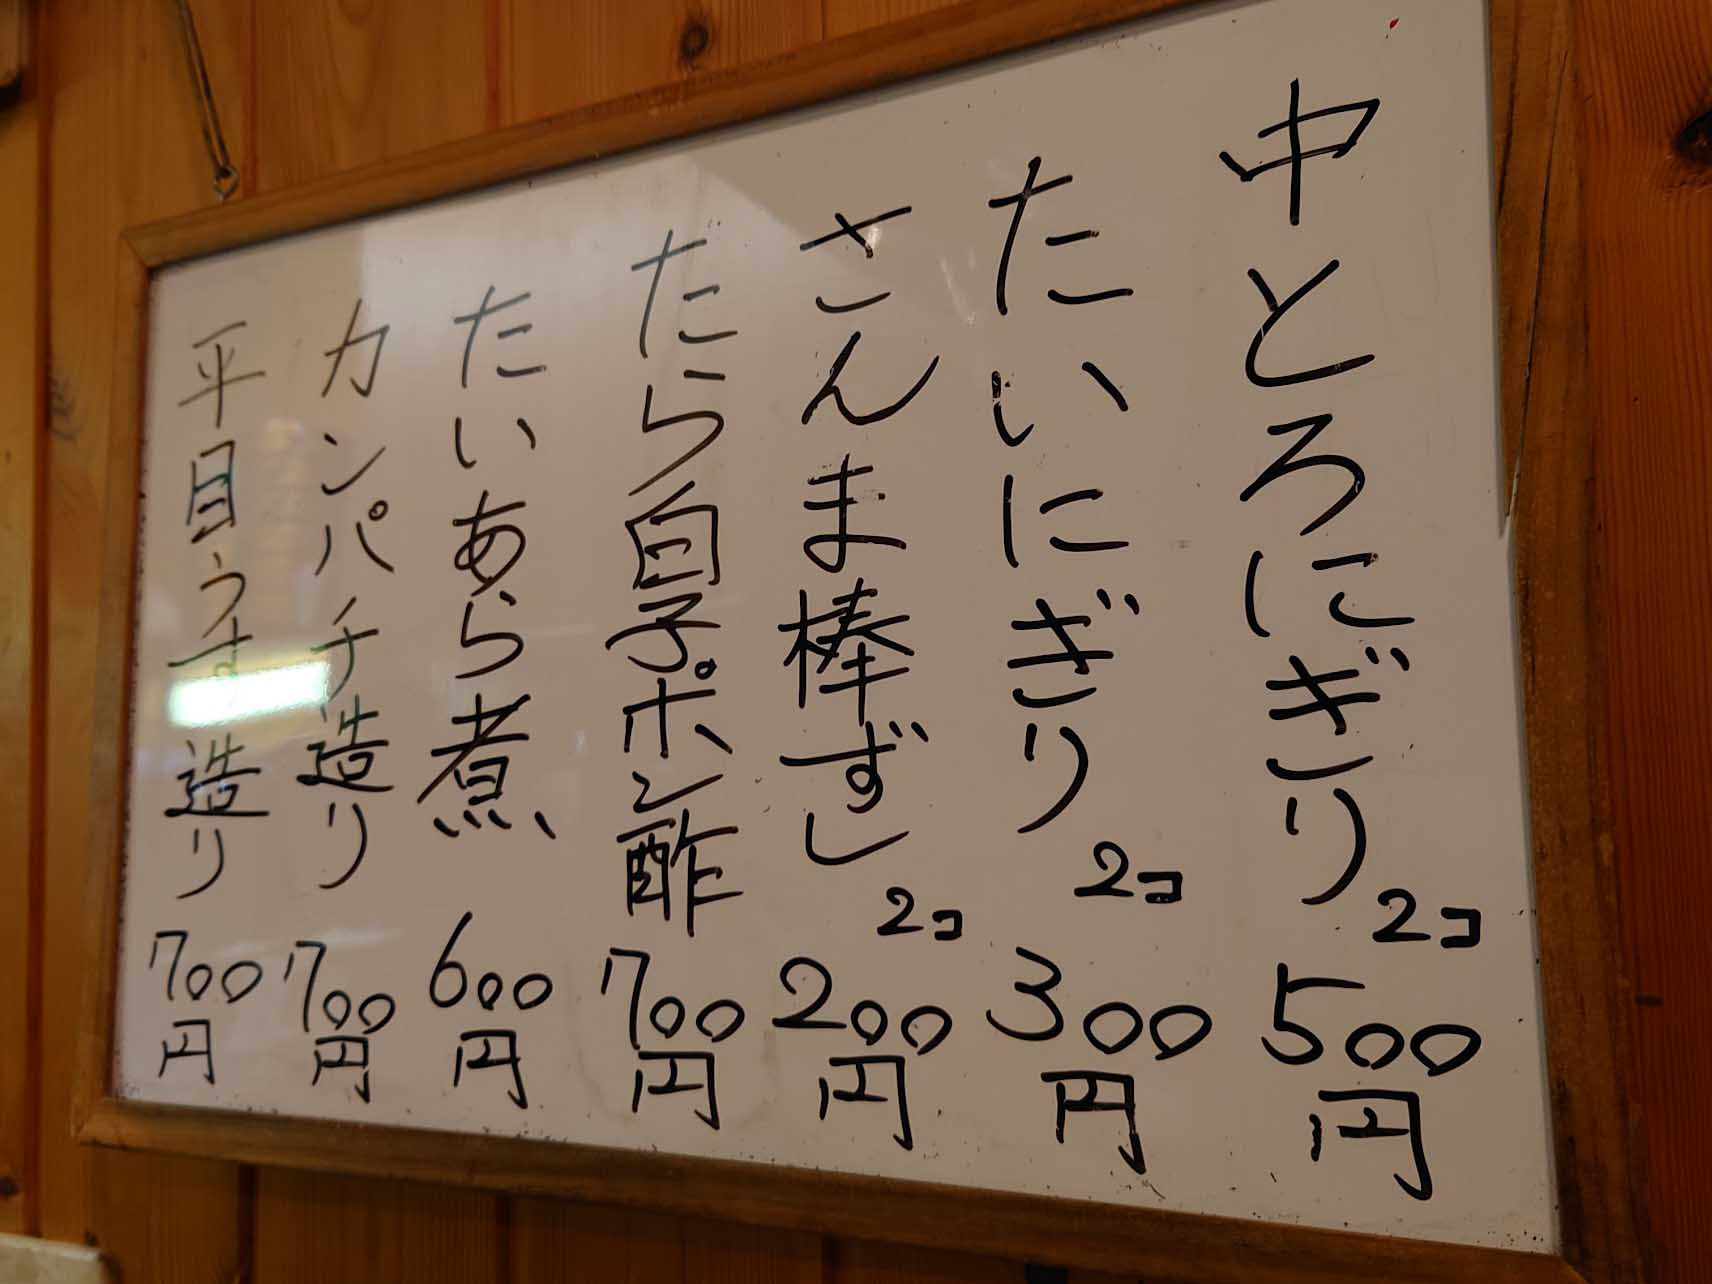 中とろにぎり 2コ 500円
たいにぎり 2コ 300円
さんま棒ずし 2コ 200円
たら白子ポン酢 700円
たいあら煮 600円
カンパチ造り 700円
平目うす造り 700円